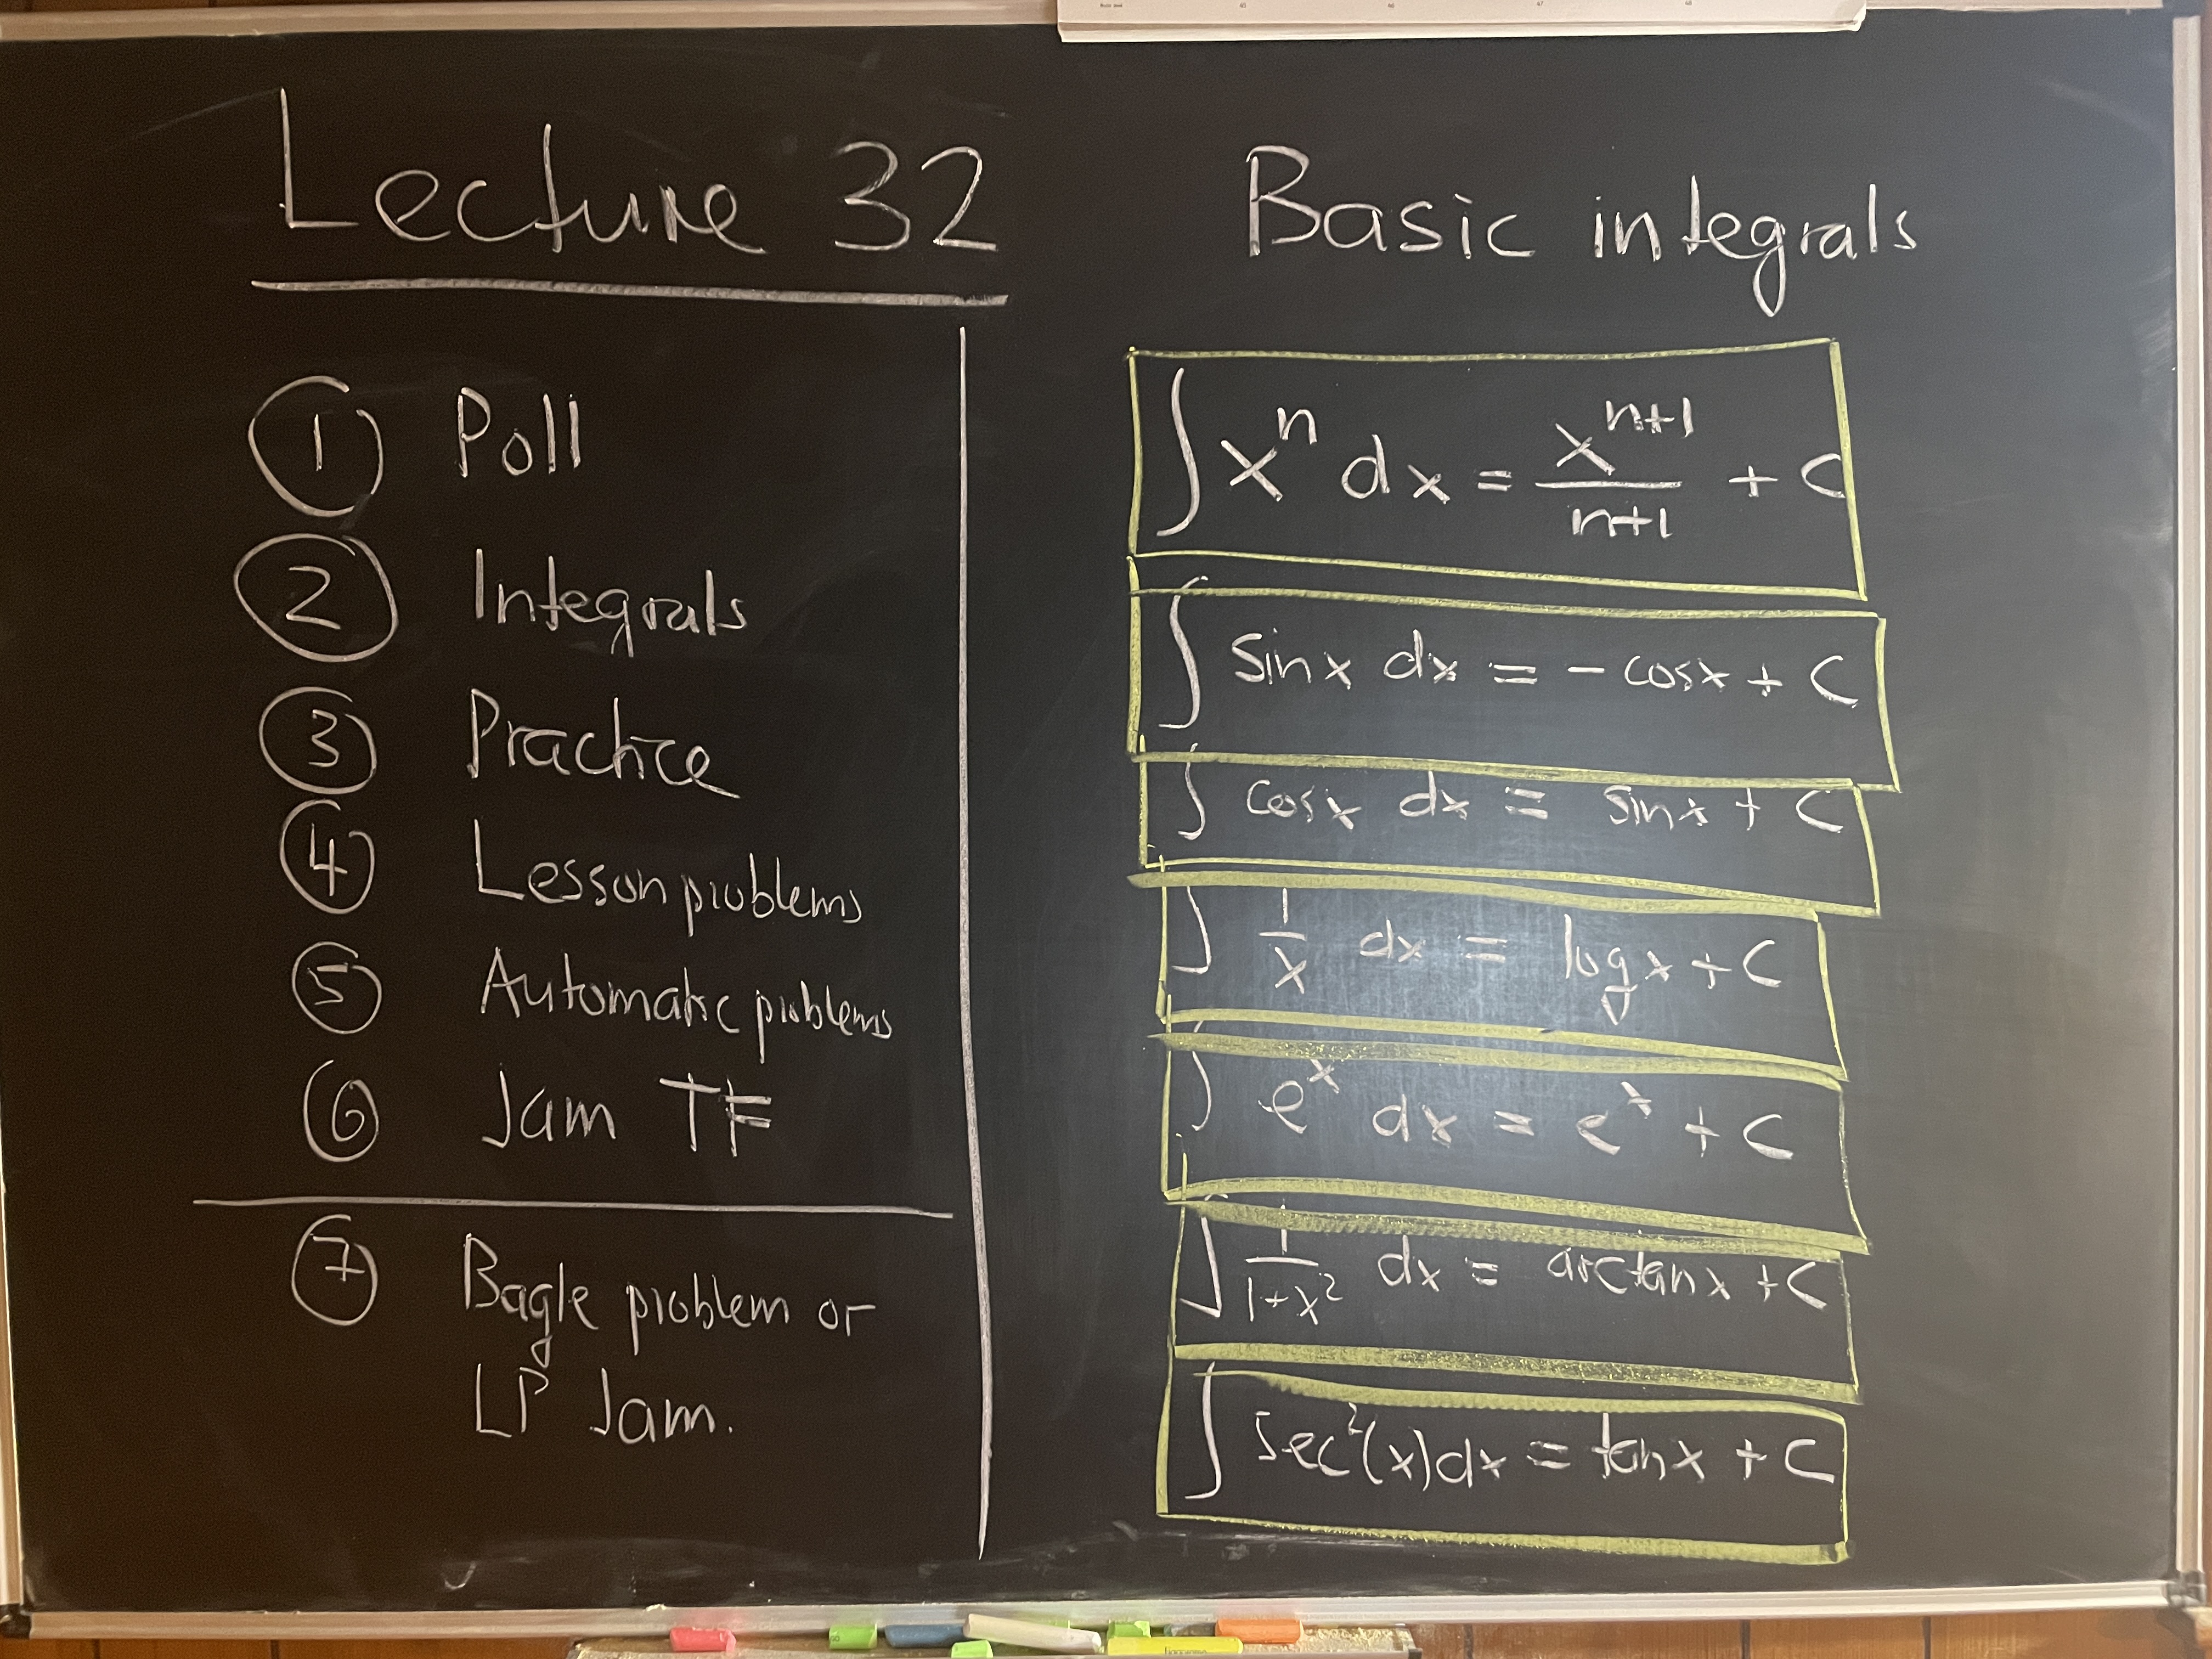 Lecture 32
① Poll
② Integrals
③ Practice
④ Lesson problems
⑤ Automatic problems
⑥ Jam TF
⑦ Bagle problem or
LP Jam.
Basic integrals
∫ xⁿ dx = xⁿ⁺¹/(n+1) + C
∫ sinx dx = - cosx + C
∫ cosx dx = sinx + C
∫ 1/x dx = logx + C
∫ eˣ dx = eˣ + C
∫ 1/(1+x²) dx = arctanx + C
∫ sec²(x)dx = tanx + C